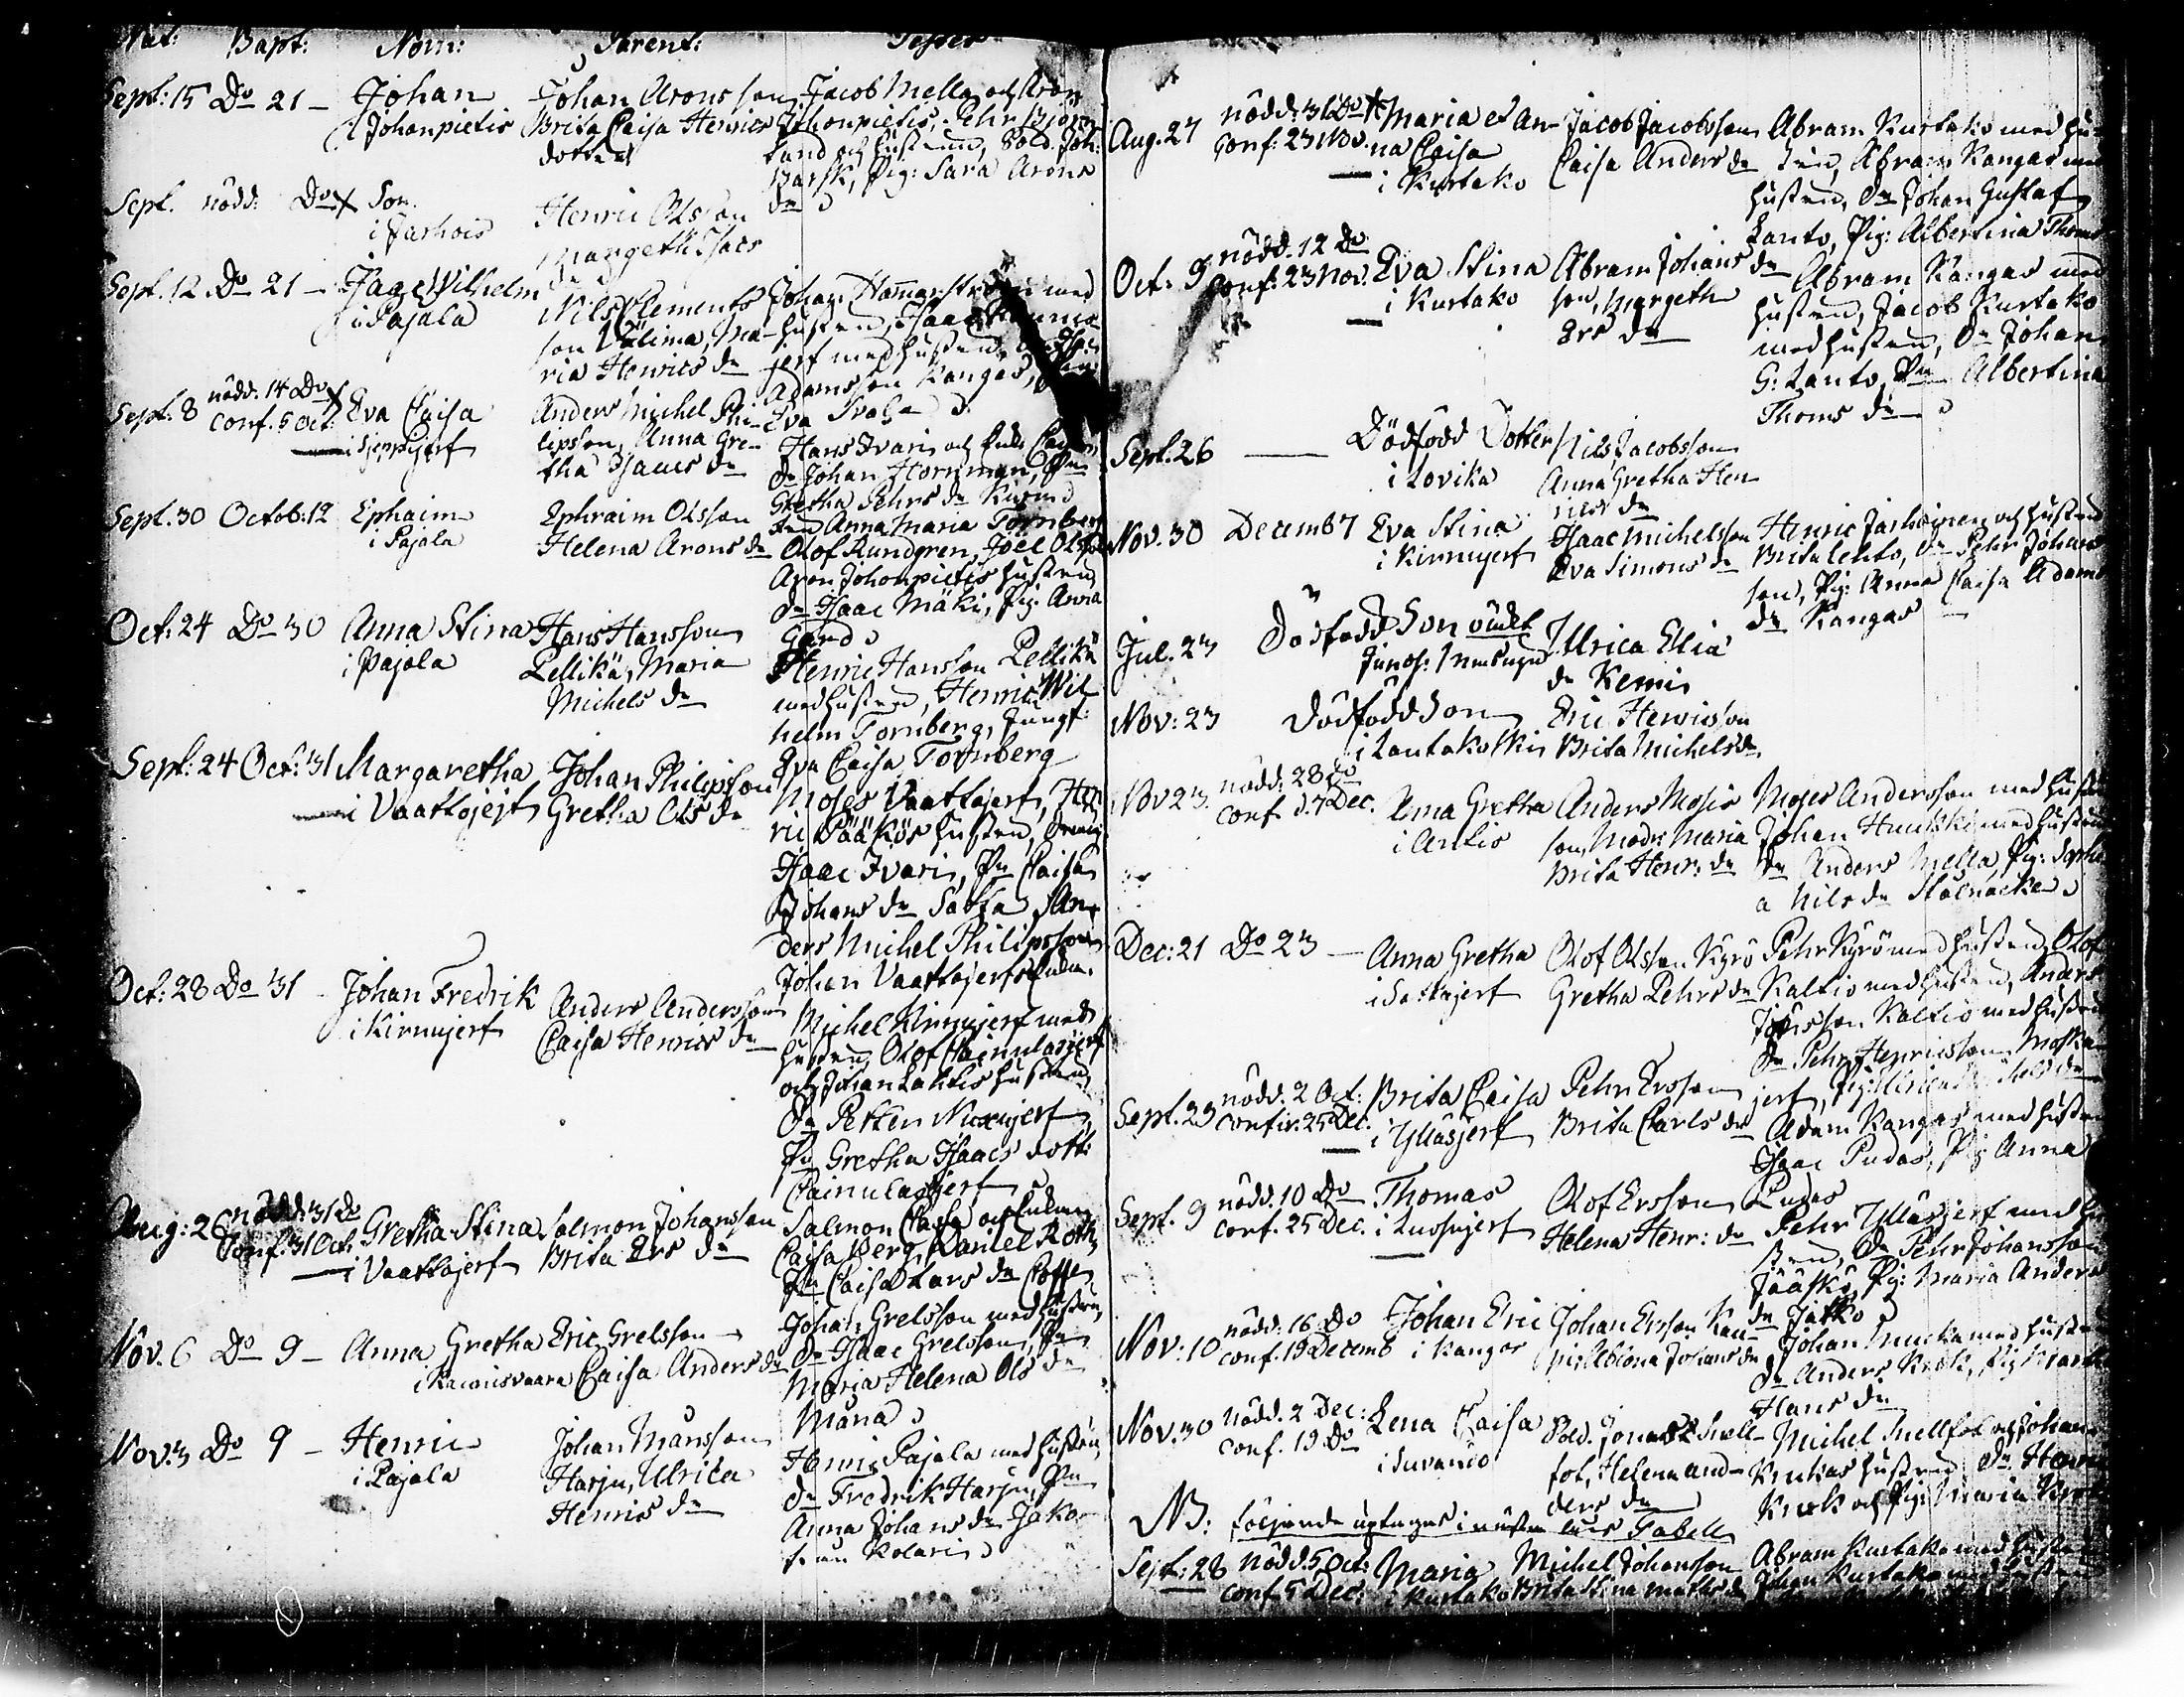 Nat: Bapt: Nom: Parent: Testes
Sept: 15 Do 21 – Johan
i Johonpietis
Johan Arons son
Brita Caisa Henrics
dotter
Jacob Mella och Aron
Johonpietis, Pehr Björn
lund och hustrun, Sold. Joh:
Barsk, Pig: Sara Arons
dr
Sept. nödd: Do Son
i Jarhois
Henric Olsson
Margeth Isacs
dr
Sept. 12 Do 21 – Isaac Wilhelm
i Pajala
Nils Clements
son Välima, Ma-
ria Henrics dr
Johan Hammarström med
hustrun, Isaac
jerf med hustrun,
Adamsson Kangas,
Eva
Sept: 8 nödd. 14 Do
conf. 5 Oct:
Eva Caisa
i Sjepsijerf
Anders Michel Phi-
lipsson, Anna Gre-
tha Isaacs dr
Hans Ivari och Enk. Caisa
Dr Johan Hornman, Pn
Gretha Pehrs dr
Anna Maria Tornberg
Sept. 30 Octob: 12 Ephaim
i Pajala
Ephraim Olsson
Helena Arons dr
Olof Rundgren, Joël Olsson
Aron Johonpietis hustrun
dr Isaac Mäki, Pig. Anna
Gard
Oct: 24 Do 30 Anna Stina
i Pajala
Hans Hansson
Pellikä, Maria
Michels dr
Henric Hansson Pellikä
med hustrun, Henric Wil
helm Tornberg, Jungf:
Eva Caisa Tornberg
Sept: 24 Oct: 31 Margaretha
i Vaattojerf
Johan Philipsson
Gretha Ols dr
Moses Vaattojerf, Hen
ric Pääkös hustrun, Dreng
Isaac Ivari, Pn Caisa
Johans dr An-
ders Michel Philipsson
Johan Vaattojerfs Enka.
Oct: 28 Do 31 – Johan Fredrik
i Kirnujerf
Anders Andersson
Caisa Henrics dr
Michel Kirnujerf med
hustrun Olof Kainulasjerf
och Johan Lahtis hustrun
Dr Petter Nuxujerf
Pn Gretha Isaacs dott:
Cainulasjerf
Aug: 26 nödd: 31 Do
Conf: 31 Oct:
Gretha Stina
i Vaattojerf
Salmon Johansson
Brita Ers dr
Salmon och Enkan
Caisa Berg, Daniel Roth,
Pn Caisa Lars dr
Nov. 6 Do 9 – Anna Gretha
Eric Grelsson
Caisa Anders dr
Johan Grelsson med hustrun,
Dr Isaac Grelsson, Pn
Maria Helena Ols dr
Muna
Nov. 3 Do 9 – Henric
i Pajala
Johan Månsson
Harju, Ulrica
Henrics dr
Henric Pajala med hustrun,
Dr Fredrik Harju, Pn
Anna Johans dr Jako
från Kolari
Aug. 27 nödd: 31 Do
Conf: 23 Nov.
Maria et An-
na Caisa
i Kurtako
Jacob Jacobsson
Caisa Anders dr
Abram Kurtako med hu-
strun, Abram Kangas med
hustrun, Dr Johan Gustaf
Lanto, Pig: Albertina Thoms
dr
Oct. 9 nödd. 12 Do
Conf: 23 Nov:
Eva Stina
i Kurtako
Abram Johans
son, Margeth
Ers dr
Abram Kangas med
hustrun, Jacob Kurtako
med hustrun, Dr Johan
G: Lanto, Pn Albertina
Thoms dr
Sept. 26 — Dödfödd Dotter
i Lovika
Nils Jacobsson
Anna Gretha Hen
rics dr
Nov. 30 Decemb 7 Eva Stina
i Kirnujerf
Isaac Michelsson
Eva Simons dr
Henric Jarhoinen och hustrun
Brita Lehto, Dr Pehr Johans
son, Pig: Anna Caisa Adams
dr Kangas
Jul. 23 Dödfödd Son oächt
Ulrica Elia
dr Kemi
Nov: 23 Dödfödd Son
i Lautakoski
Eric Henricsson
Brita Michels dr
Nov 23. nödd: 28 Do
Conf. d. 7 Dec.
Anna Gretha
i Antis
Anders Moses
son, Modr: Maria
Brita Henr: dr
Moses Andersson med hustrun
Johan med hustrun
Dr Anders Mella Pig: Sophi
a Nils dr Stålnacke
Dec: 21 Do 23 – Anna Gretha
Olof Olsson Kyrö
Gretha Pehrs dr
Pehr Kyrö med hustrun, Olof
Kaltio med hustrun, Anders
Jönsson Kaltio med hustrun
Dr Pehr Henricsson
jerf, Pig: Ulrica Michels dr
Sept. 23 nödd. 2 Oct:
Confir. 25 Dec.
Brita Caisa
i Ylläsjerf
Pehr Ersson
Brita Carls dr
Adam Kangas med hustrun
Isaac Pudas, Pig Anna
Pudas
Sept. 9 nödd. 10 Do
conf. 25 Dec.
Thomas
i Luosujerf
Olof Ersson
Helena Henr: dr
Pehr Ylläsjerf med hu
strun, Dr Pehr Johansson
Jääskö, Pig: Maria Anders
dr Jatko
Nov: 10 nödd: 16 Do
conf. 19 Decemb
Johan Eric
i Kangos
Johan Ersson Kau-
pis Johans dr
Johan med hustrun
Dr Anders Krok, Pig
Hans dr
Nov. 30 nödd. 2 Dec:
conf. 19 Do
Lena Caisa
i Juvanio
Sold. Jonas Snell-
fot, Helena And-
ders dr
Michel Snellfot och Johan
hustrun, Dr Henric
Krok och Pig: Maria
NB: följande uptages i nästa års Tabell
Sept: 28 nödd. 5 Oct:
conf. 5 Dec:
Maria
i Kurtako
Michel Johansson
Brita Stina Matts dr
Abram Kurtako med hustrun
Johan Kurtako med hustrun